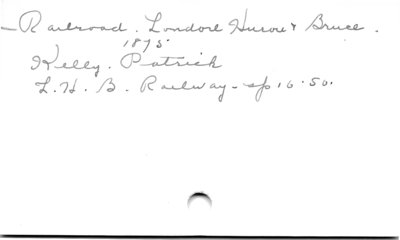 — Railroad. London Huron & Bruce.
1875
Kelly. Patrick
L. H. B. Railway - sp 16.50.